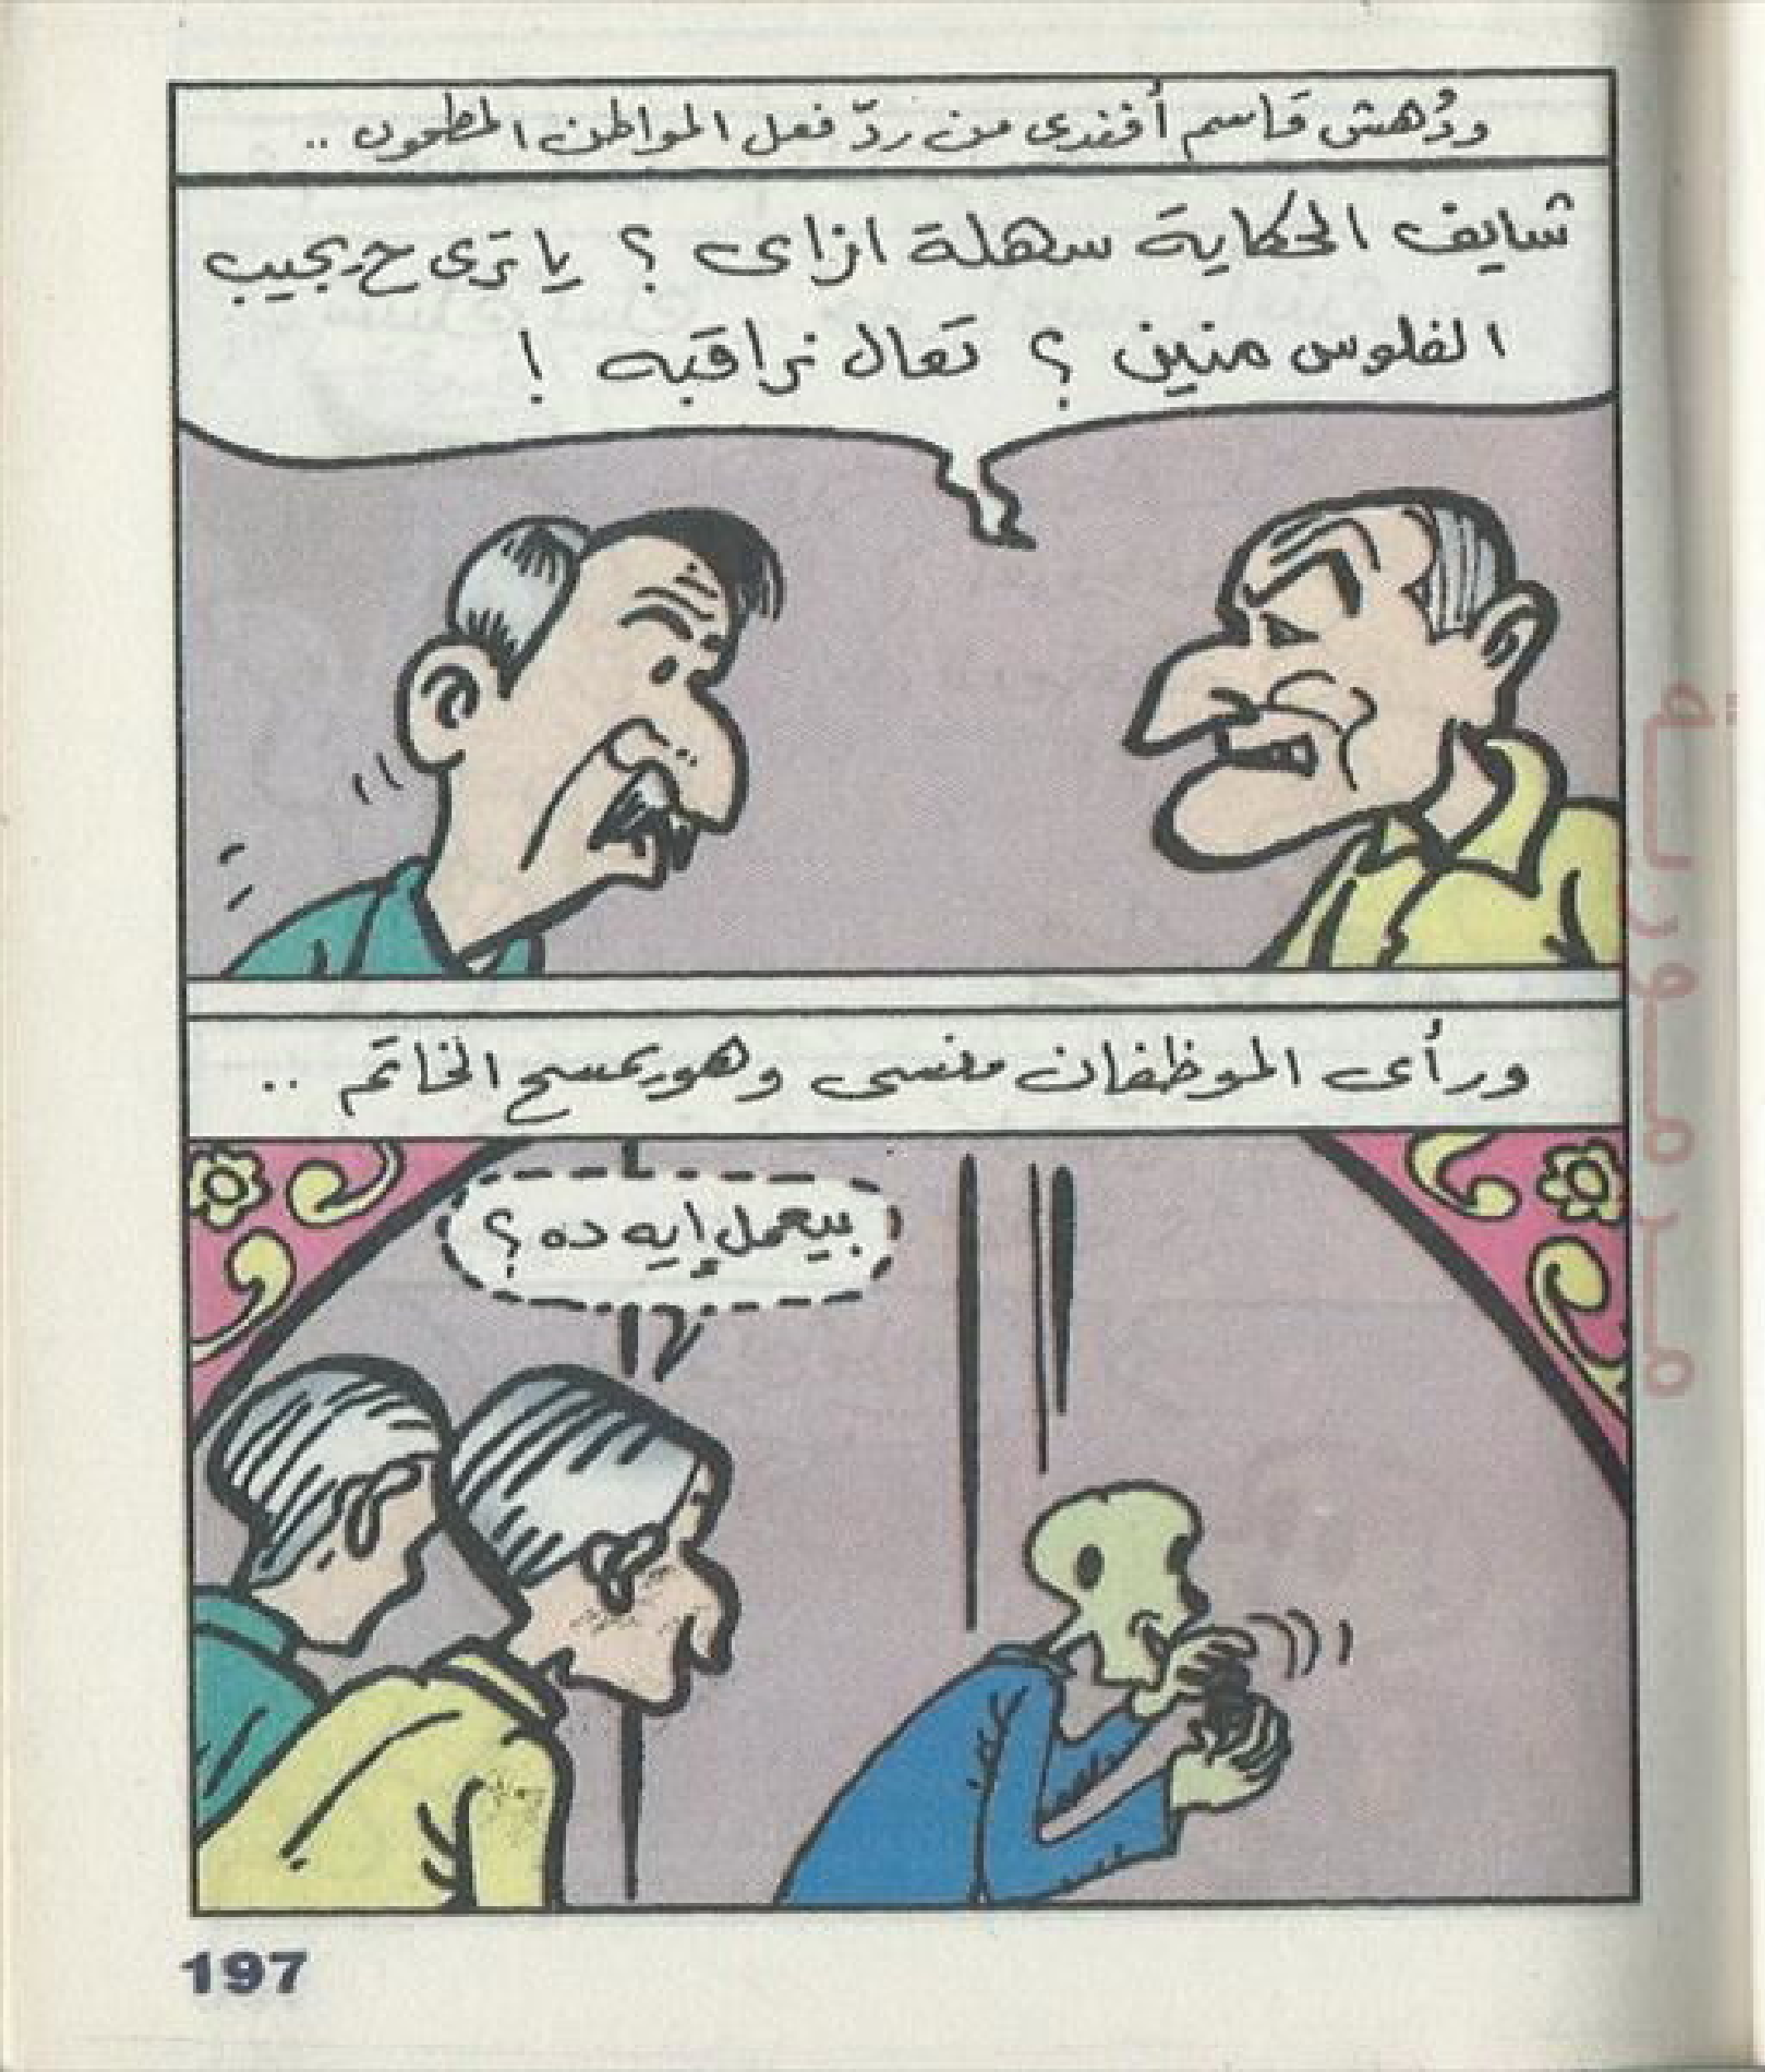 ودُهش قاسم أفندى من ردّ فعل المواطن المطحون ..
شايف الحكاية سهلة ازاى ؟ يا ترى ح يجيب
الفلوس منين ؟ تعال نراقبه !
ورأى الموظفان منسى وهو يمسح الخاتم ..
بيعمل إيه ده ؟
197